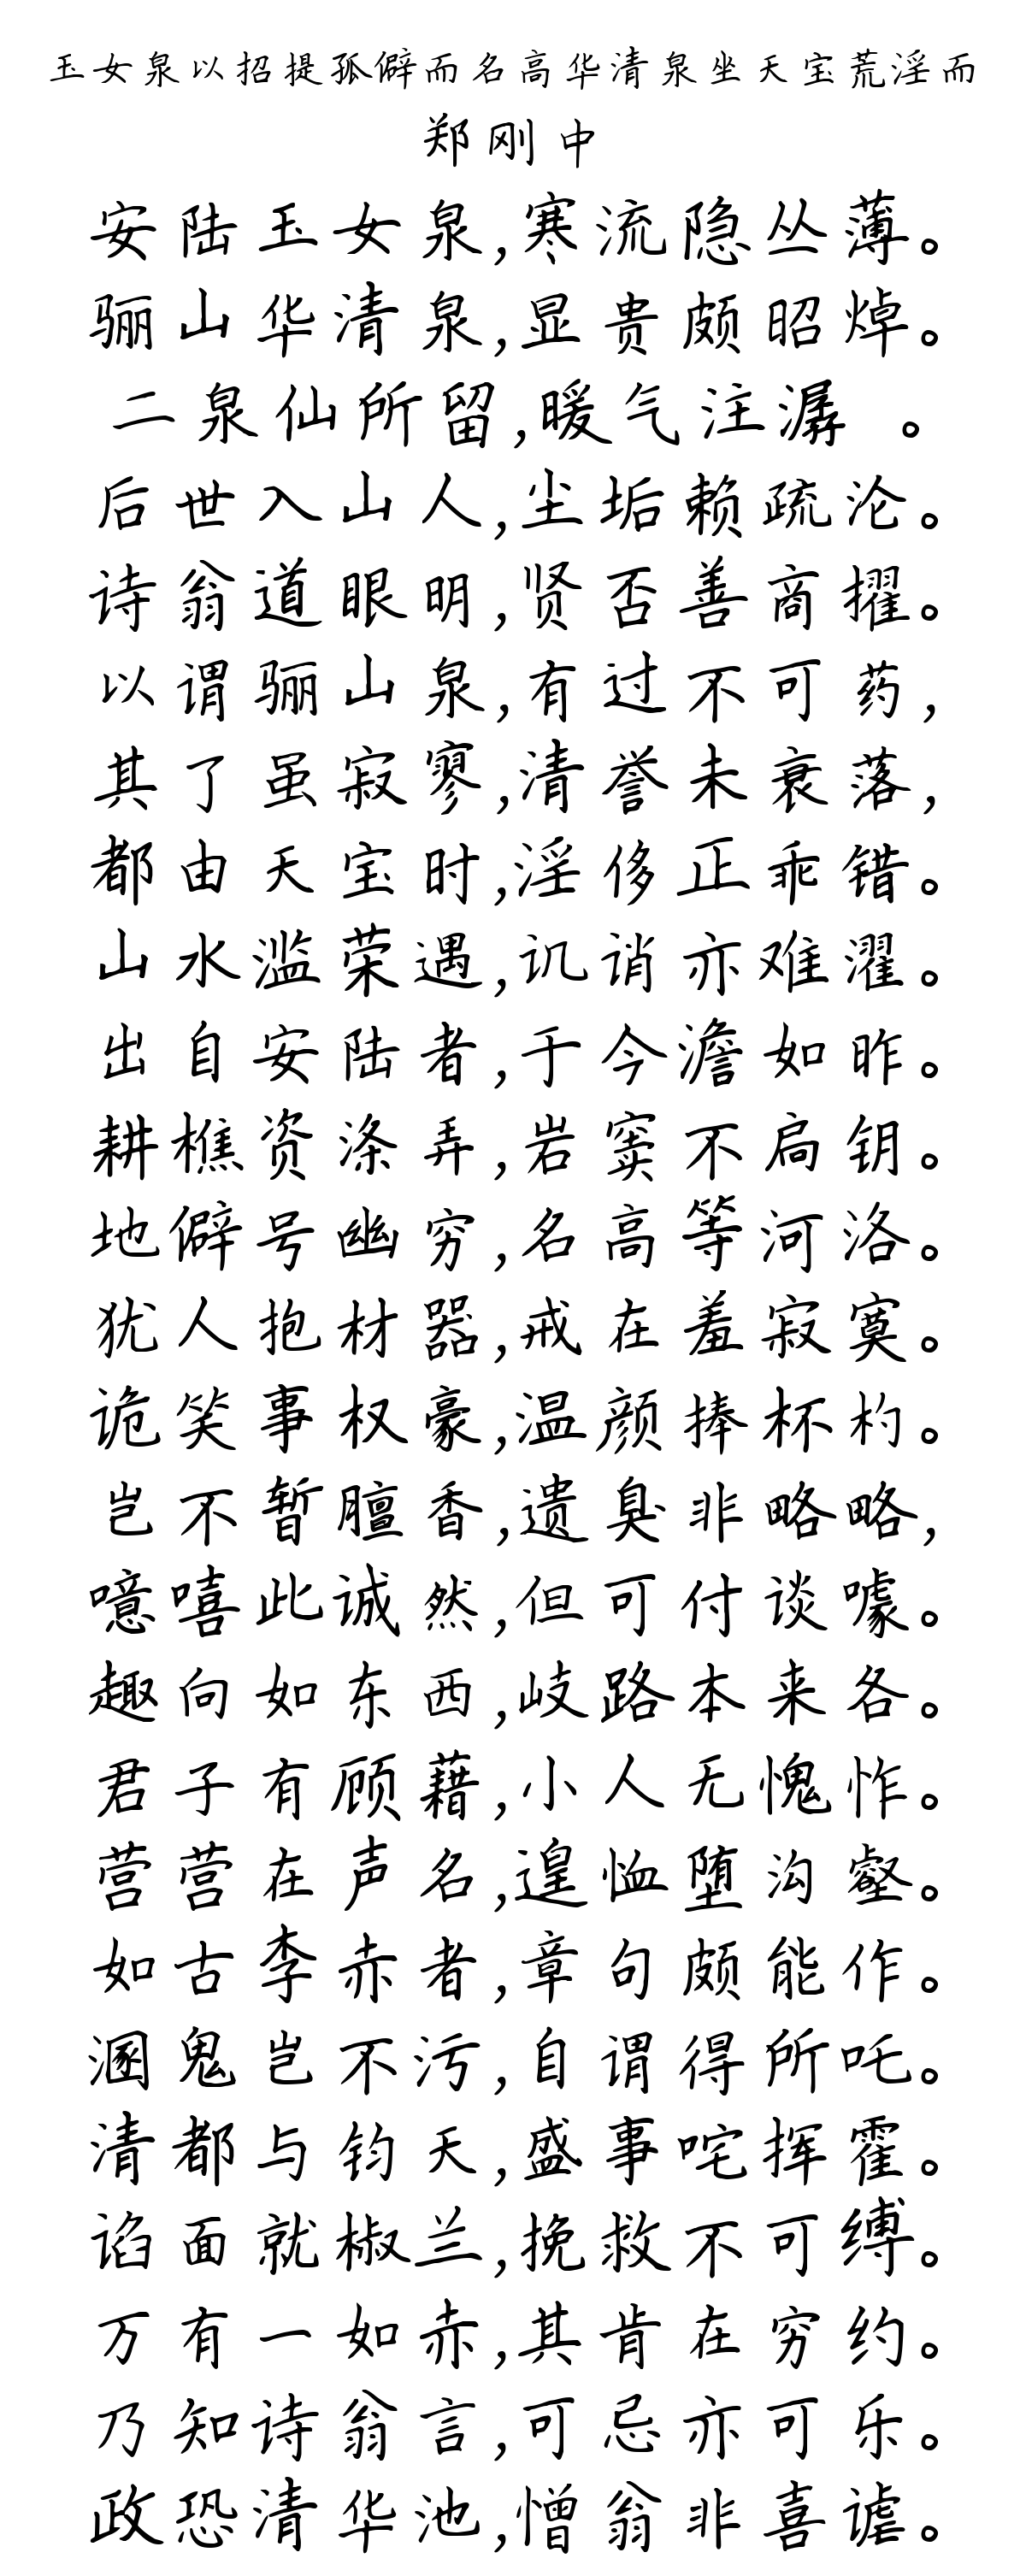 玉女泉以招提孤僻而名高华清泉坐天宝荒淫而
郑刚中
安陆玉女泉,寒流隐丛薄。
骊山华清泉,显贵颇昭焯。
二泉仙所留,暖气注潺 。
后世入山人,尘垢赖疏沦。
诗翁道眼明,贤否善商擢。
以谓骊山泉,有过不可药,
其了虽寂寥,清誉未衰落,
都由天宝时,淫侈正乖错。
山水滥荣遇,讥诮亦难濯。
出自安陆者,于今澹如昨。
耕樵资涤弄,岩窦不扃钥。
地僻号幽穷,名高等河洛。
犹人抱材器,戒在羞寂寞。
诡笑事权豪,温颜捧杯杓。
岂不暂膻香,遗臭非略略,
噫嘻此诚然,但可付谈噱。
趣向如东西,岐路本来各。
君子有顾藉,小人无愧怍。
营营在声名,遑恤堕沟壑。
如古李赤者,章句颇能作。
溷鬼岂不污,自谓得所吒。
清都与钧天,盛事咤挥霍。
谄面就椒兰,挽救不可缚。
万有一如赤,其肯在穷约。
乃知诗翁言,可忌亦可乐。
政恐清华池,憎翁非喜谑。